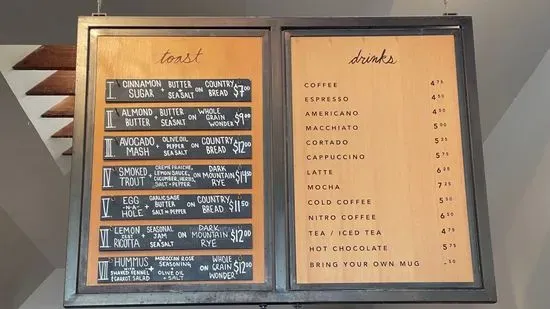 toast
I. CINNAMON SUGAR + BUTTER + SEA SALT ON COUNTRY BREAD $7.00
II. ALMOND BUTTER + BUTTER + SEA SALT ON WHOLE GRAIN WONDER $9.00
III. AVOCADO MASH + OLIVE OIL + PEPPER SEA SALT ON COUNTRY BREAD $12.00
IV. SMOKED TROUT + CRÈME FRAICHE, LEMON SAUCE, CUCUMBER, HERBS, SALT + PEPPER ON DARK MOUNTAIN RYE
V. EGG -N-A- HOLE + GARLIC SAGE BUTTER SALT + PEPPER ON COUNTRY BREAD $11.50
VI. LEMON ZEST RICOTTA + SEASONAL JAM + SEA SALT ON DARK MOUNTAIN RYE $12.00
VII. HUMMUS + SHAVED FENNEL & CARROT SALAD + MOROCCAN ROSE SEASONING + OLIVE OIL + SALT ON WHOLE GRAIN WONDER $12.00
drinks
COFFEE 4.75
ESPRESSO 4.50
AMERICANO 4.50
MACCHIATO 5.00
CORTADO 5.25
CAPPUCCINO 5.75
LATTE 6.25
MOCHA 7.25
COLD COFFEE 5.50
NITRO COFFEE 6.50
TEA / ICED TEA 4.50
HOT CHOCOLATE 4.75
BRING YOUR OWN MUG -.50